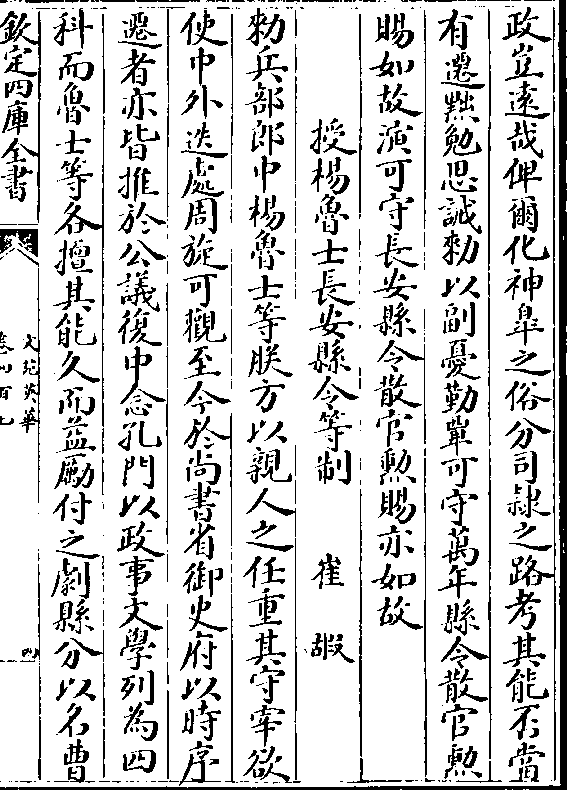 政豈遠哉俾爾化神皐之俗分司隷之路考其能否當
有遷黜勉思誠勅以副憂勤軰可守萬年縣令散官勲
賜如故演可守長安縣令散官勲賜亦如故
授楊魯士長安縣令等制 崔嘏
勅兵部郎中楊魯士等朕方以親人之任重其守宰欲
使中外迭處周旋可觀至今於尚書省御史府以時序
遷者亦皆推於公議復中念孔門以政事文學列為四
科而魯士等各擅其能久而益勵付之劇縣分以名曹
欽定四庫全書
文苑英華
卷四百七
四